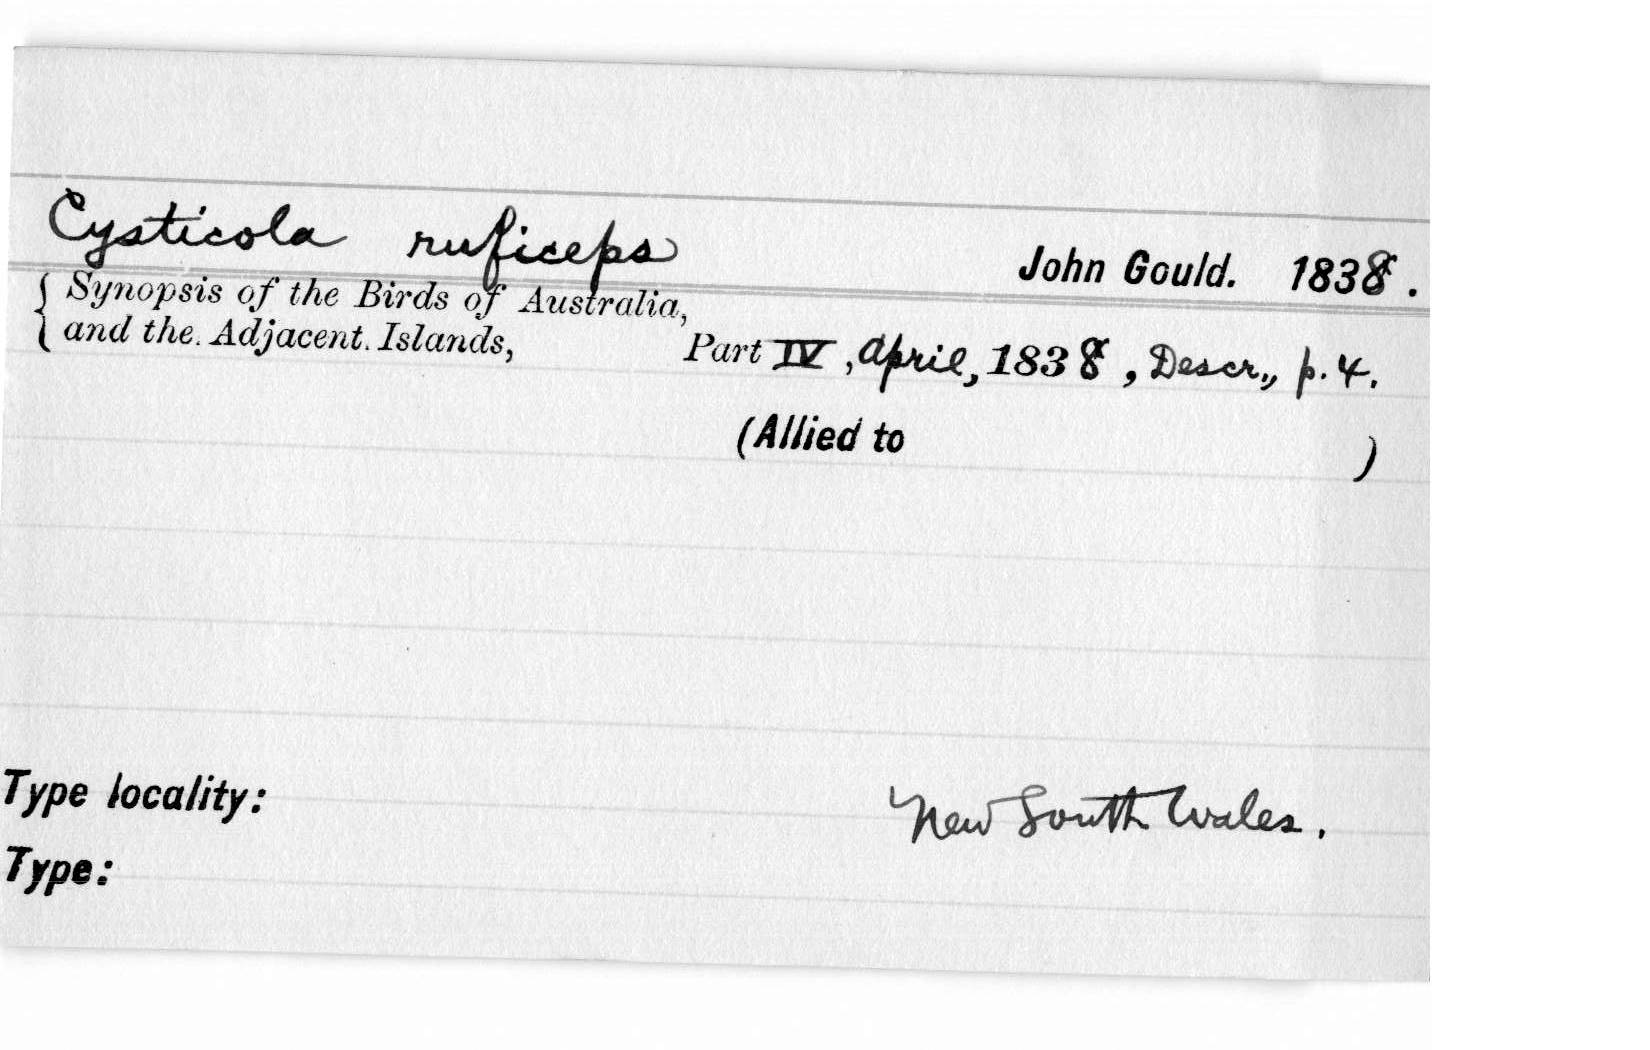 Cysticola ruficeps John Gould. 1838.
{ Synopsis of the Birds of Australia,
{ and the. Adjacent. Islands, Part IV, April, 1838, Descr., p. 4.
(Allied to )
Type locality: New South Wales.
Type: